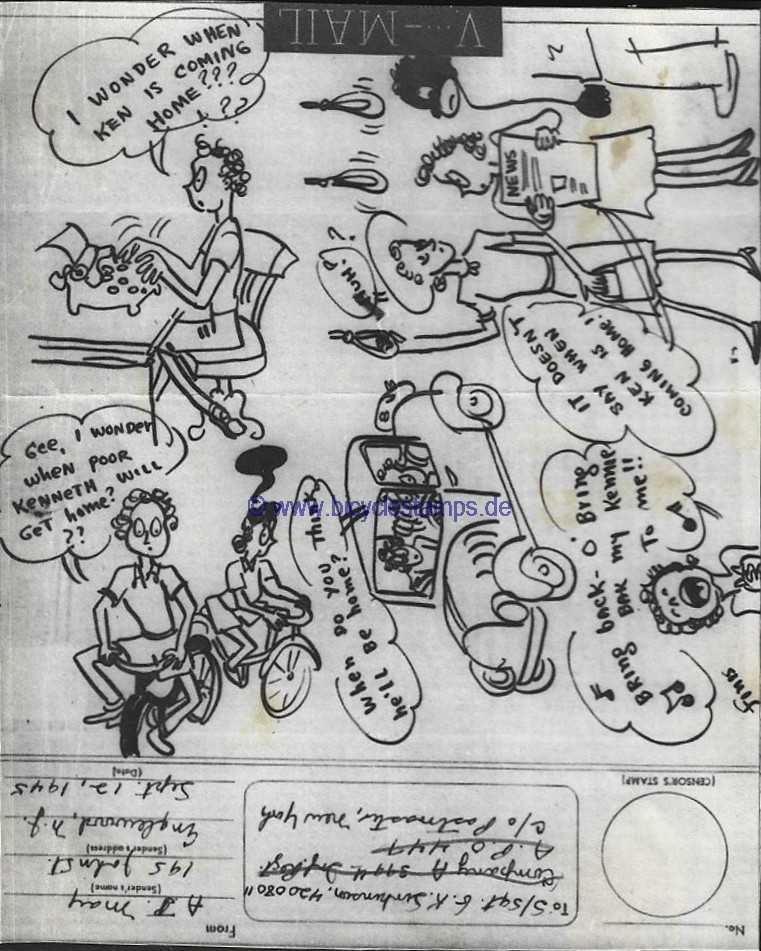 V···—MAIL
I WONDER WHEN
KEN IS COMING
HOME???
???
NEWS
HUH??
IT DOESN'T
SAY WHEN
KEN IS
COMING HOME!!
GEE, I WONDER
WHEN POOR
KENNETH WILL
GET HOME?
??
© www.bicyclestamps.de
When DO YOU Think
he'll Be home?
Bring back - O, Bring
Bring Bac my Kennie
To me!!
Finis
No.
From
A. J. May
(Sender's name)
195 John St.
(Sender's address)
Englewood, N.J.
Sept. 12, 1945
(Date)
To: S/Sgt.
Company A
A.P.O. 444
c/o Postmaster, New York
[CENSOR'S STAMP]